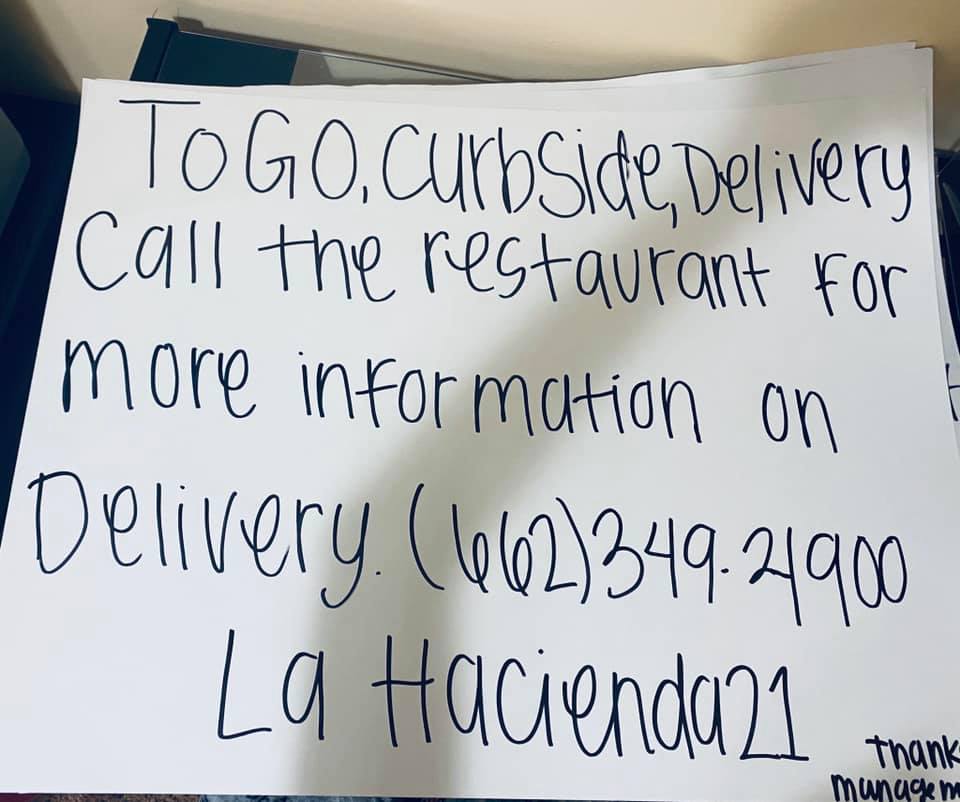 To GO, Curbside, Delivery
Call the restaurant for
more information on
Delivery. (662)349.21900
La Hacienda21
Thank
managem